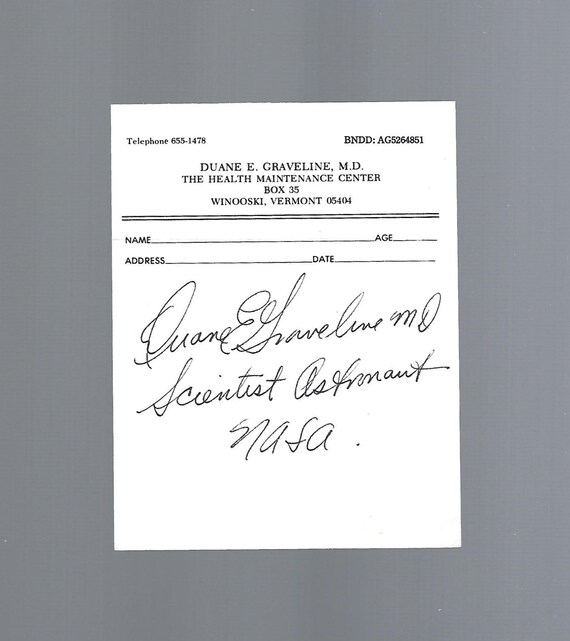 Telephone 655-1478 BNDD: AG5264851
DUANE E. GRAVELINE, M.D.
THE HEALTH MAINTENANCE CENTER
BOX 35
WINOOSKI, VERMONT 05404
NAME AGE
ADDRESS DATE
Duane E Graveline MD
Scientist Astronaut
NASA.